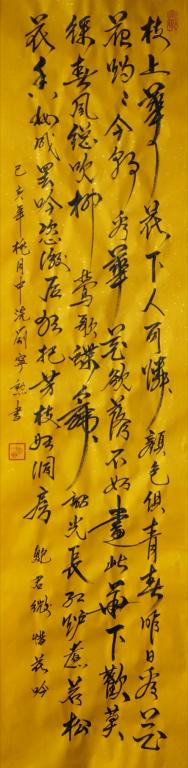 枝上華花下人可憐顏色俱青春昨日看花
花灼灼今朝看華花欲落不如盡此華下歡莫
待春風總吹却鶯歌蝶舞韶光長紅爐煮茗松
花香妝成罢吟恣遊后独把芳枝归洞房 鮑君徽惜花吟
己亥年桃月中浣 寧 書